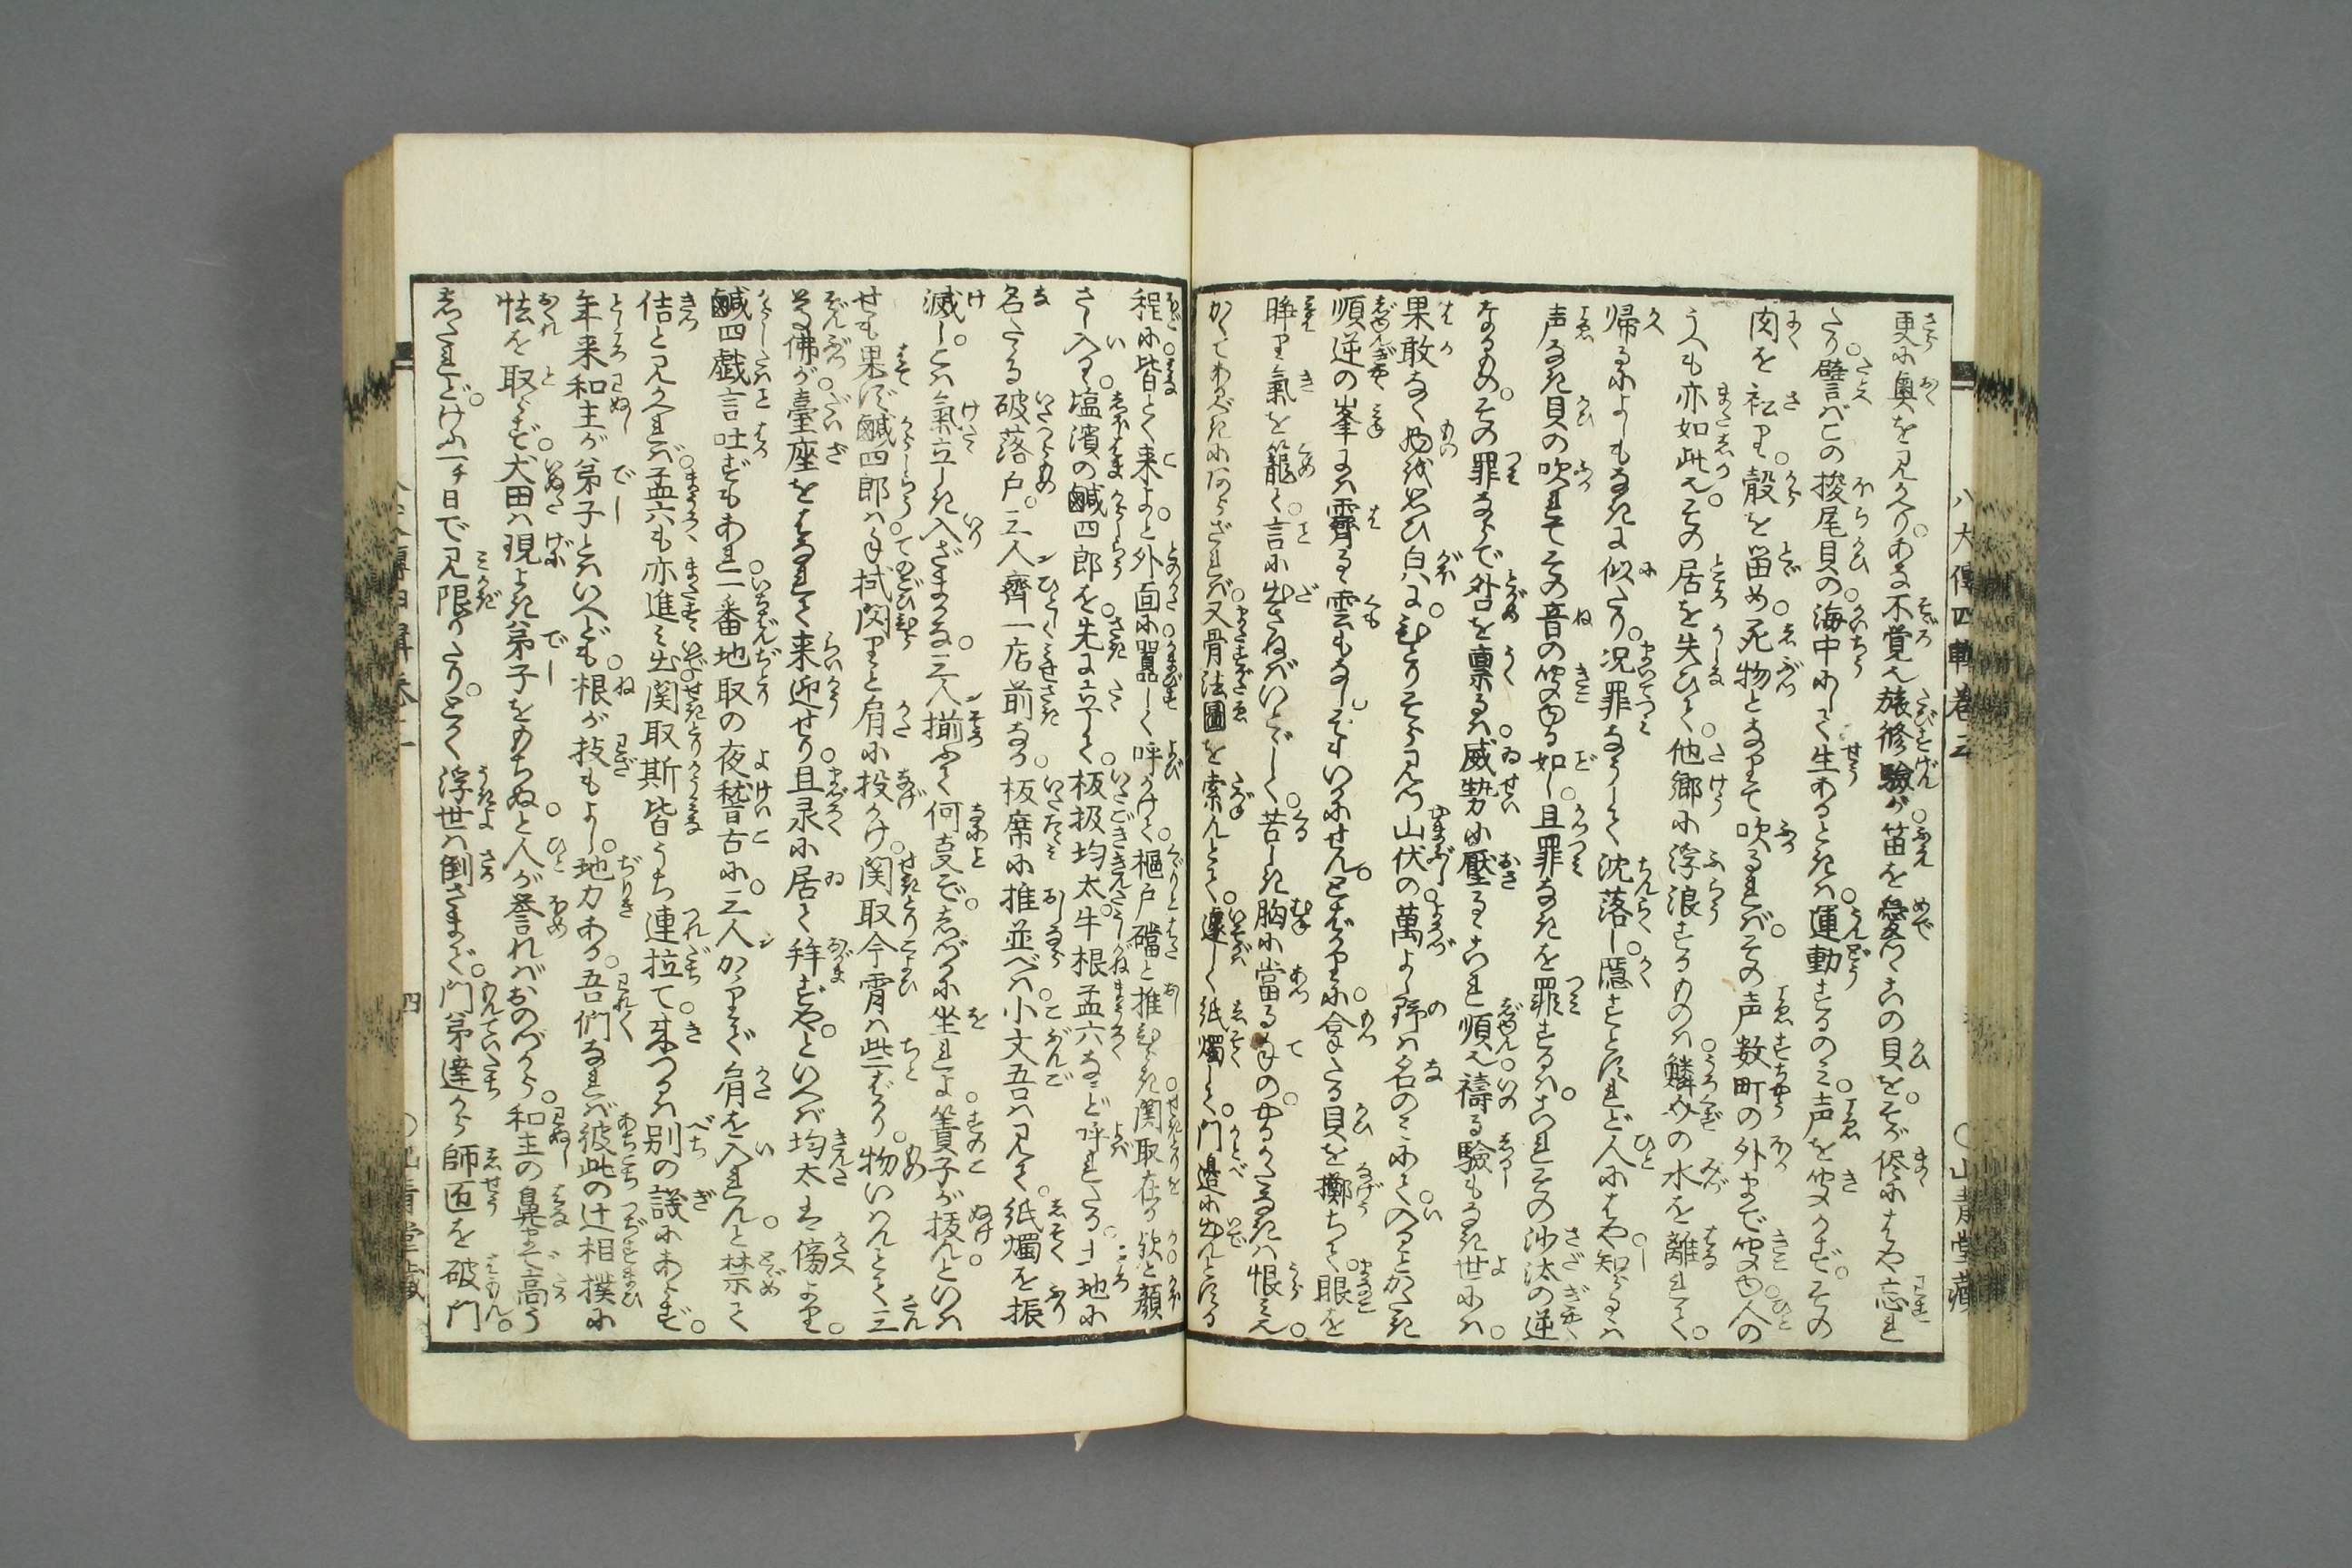 八犬傳四輯巻三
○山青堂藏
更に奥を見かへりあな不覚や旅修驗が笛を愛つゝこの貝をそが侭にはや忘れ
たり譬ばこの梭尾貝の海中にして生あるときは運動するのみ声を聞かずその
肉を
殻を留め死物となりて吹るればその声数町の外まで聞ゆ人の
うへも亦如此ぞその居を失ひて他郷に浮浪するものは鱗介の水を離れて
帰るによしもなきに似たり况罪なうして沈落し隱すとすれど人にはや知らるゝは
声なき貝の吹れてその音の聞ゆる如し且罪なきを罪するはこれその沙汰の逆
なるものその罪ならで咎を禀るは威勢に壓るゝこれ順ぞ禱る驗もなき世には
果敢なく物
山伏の萬よし野は名のみにて入るとかたき
順逆の峯には霽るゝ雲もなしそもいかにせんとばかりに拿たる貝を擲ちて眼を
睜り氣を籠て言に出さねばいとゞしく苦しき胸に當る手のやるかたなきは恨みぞ
かくてあるべきにあらざれば又骨法圖を索んとて遽しく紙燭して門邊に出んとする
程に皆とく來よと外面に囂しく呼びかけて樞戸礑と推ひらき関取在り欤と顏
さし入るゝ塩濱の鹹四郎を先に立して板扱均太牛根孟六なンど呼れたる土地に
名たゝる破落戸三人齊一店前なる板席に推並べば小文吾は見て紙燭を振
滅しこは氣立しき入ざまかな三人揃ふて何事ぞしづかに坐れよ簀子が抜んといへ
せも果ず鹹四郎は手拭閃りと肩に投かけ関取今宵は些ばかり物いはんとて三
尊佛が臺座をはなれて来迎せり且尿に居て拜ずやといへば均太も傍より
鹹四戯言吐ずもあれ一番地取の夜稽古に三人かゝりぞ肩を入れんと禁て
佶と見かへれば孟六も亦進み出関取斯皆うち連拉て来つるは別の議にあらず
年来和主が弟子とはいへども根が技もよし地力ある吾們なれば彼此の辻相撲に
怯を取らず犬田は現よき弟子をもちぬと人が誉ればおのづから和主の鼻まで高う
したれどけふ一チ日で見限りたりとく浮世は倒さまぞ門弟達から師匠を破門
四